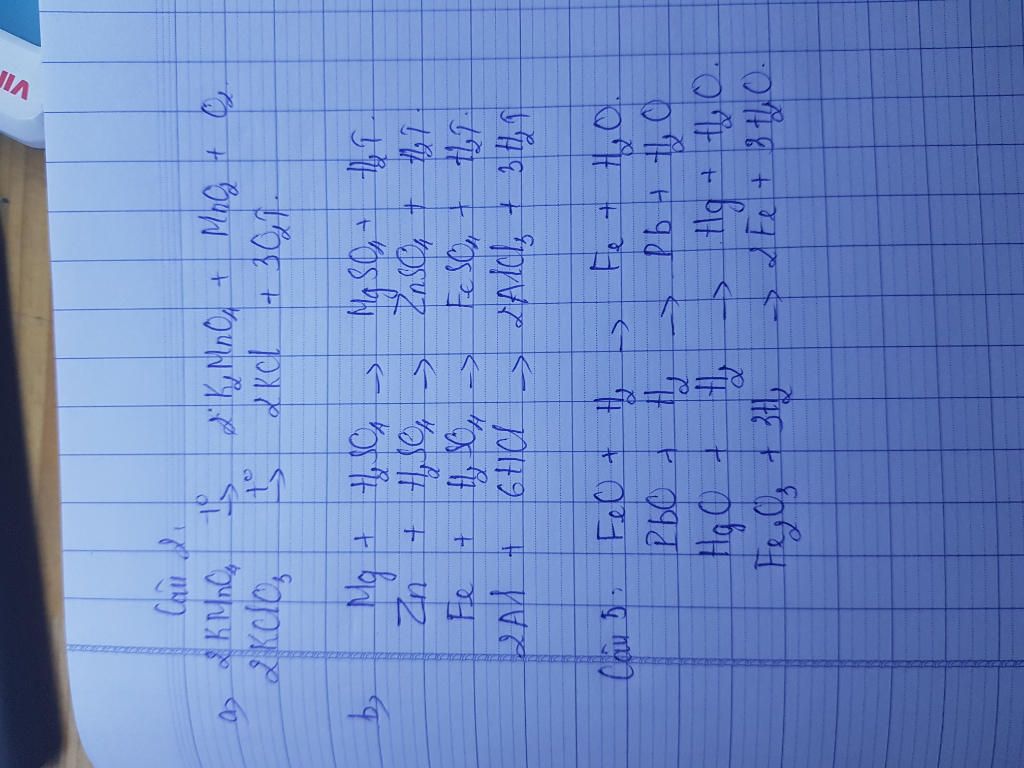 VIN
Câu 2:
a, 2KMnO₄ –t°→ 2K₂MnO₄ + MnO₂ + O₂
2KClO₃ –t°→ 2KCl + 3O₂↑.
b, Mg + H₂SO₄ → MgSO₄ + H₂↑.
Zn + H₂SO₄ → ZnSO₄ + H₂↑.
Fe + H₂SO₄ → FeSO₄ + H₂↑.
2Al + 6HCl → 2AlCl₃ + 3H₂↑
Câu 5: FeO + H₂ → Fe + H₂O.
PbO + H₂ → Pb + H₂O
HgO + H₂ → Hg + H₂O.
Fe₂O₃ + 3H₂ → 2Fe + 3H₂O.